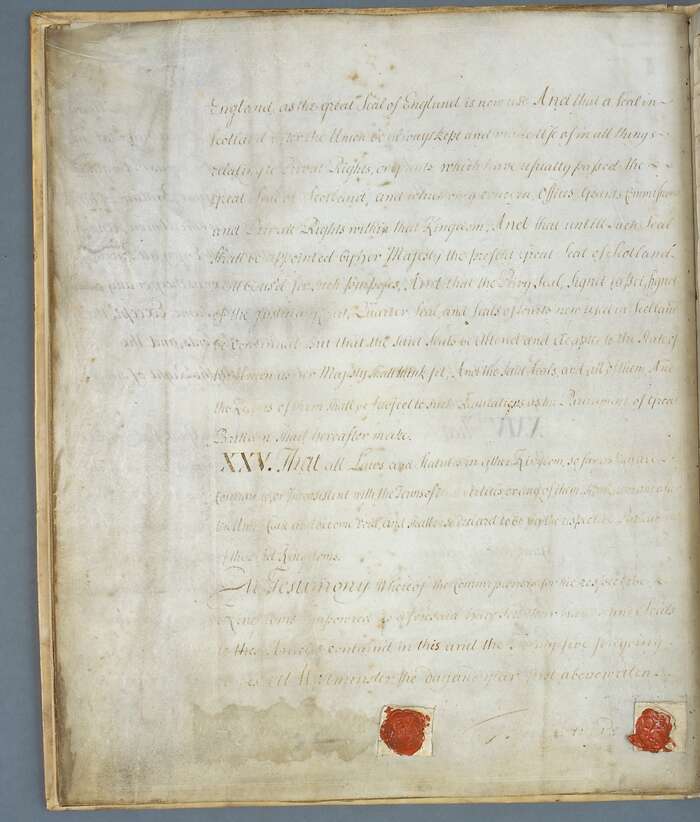 England, as the great Seal of England is now use And that a Seal in
Scotland after the Union be always kept and made Use of in all things
relating to Privat Rights, or grants which have usually passed the
great Seal of Scotland, and which only concern Offices Grants Commissions
and Private Rights within that Kingdom, And that untill such Seal
shall be appointed by Her Majesty the present great Seal of Scotland
shall be used for such purposes, And that the Privy Seal, Signet Casset, Signet
of the Justiciary Court, Quarter Seal, and Seals of Courts now used in Scotland
be continued But that the said Seals be altered and adapted to the State of
the Union as Her Majesty shall think fit, And the said Seals, and all of them, And
the Keepers of them shall be subject to such Regulations as the Parliament of Great
Brittain shall hereafter make.
XXV. That all Laws and Statutes in either Kingdom, so far as they are
contrary to or inconsistent with the Terms of these Articles or any of them shall from and after
the Union cease and become void, and shall be so declared to be by the respective Parliaments
of the said Kingdoms.
In Testimony Whereof the Commissioners for the respective
Kingdoms impowered as aforesaid have set their hands and Seals
to these Articles contained in this and the Twenty five foregoing
Pages at Westminster the day and year first above written